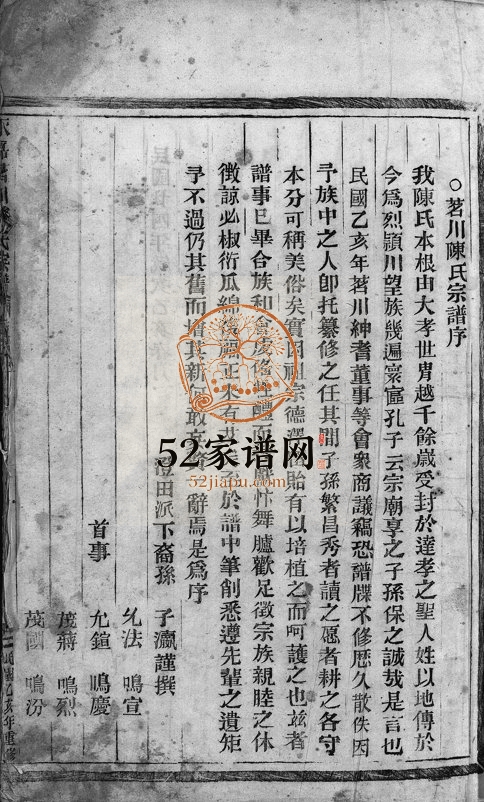 ○茗川陳氏宗譜序
我陳氏本根由大孝世胄越千餘歲受封於達孝之聖人姓以地傳於
今爲烈潁川望族幾遍寰區孔子云宗廟享之子孫保之誠哉是言也
民國乙亥年茗川紳耆董事等會衆商議竊恐譜牒不修歷久散佚因
予族中之人卽托纂修之任其間子孫繁昌秀者讀之愿者耕之各守
本分可稱美俗矣實因祖宗德澤貽有以培植之而呵護之也玆者
譜事已畢合族和會虔俻牲醴而忭舞臚歡足徵宗族親睦之休
徵諒必椒衍瓜綿後嗣正未有艾予於譜中筆削悉遵先輩之遺矩
予不過仍其舊而增其新何敢辭焉是爲序
田派下裔孫 子瀛謹撰
首事
允法 鳴宣
允鍹 鳴慶
茂蔣 鳴烈
茂國 鳴汾
乙亥年重修
52家谱网
www.52jiapu.com
52jiapu.com